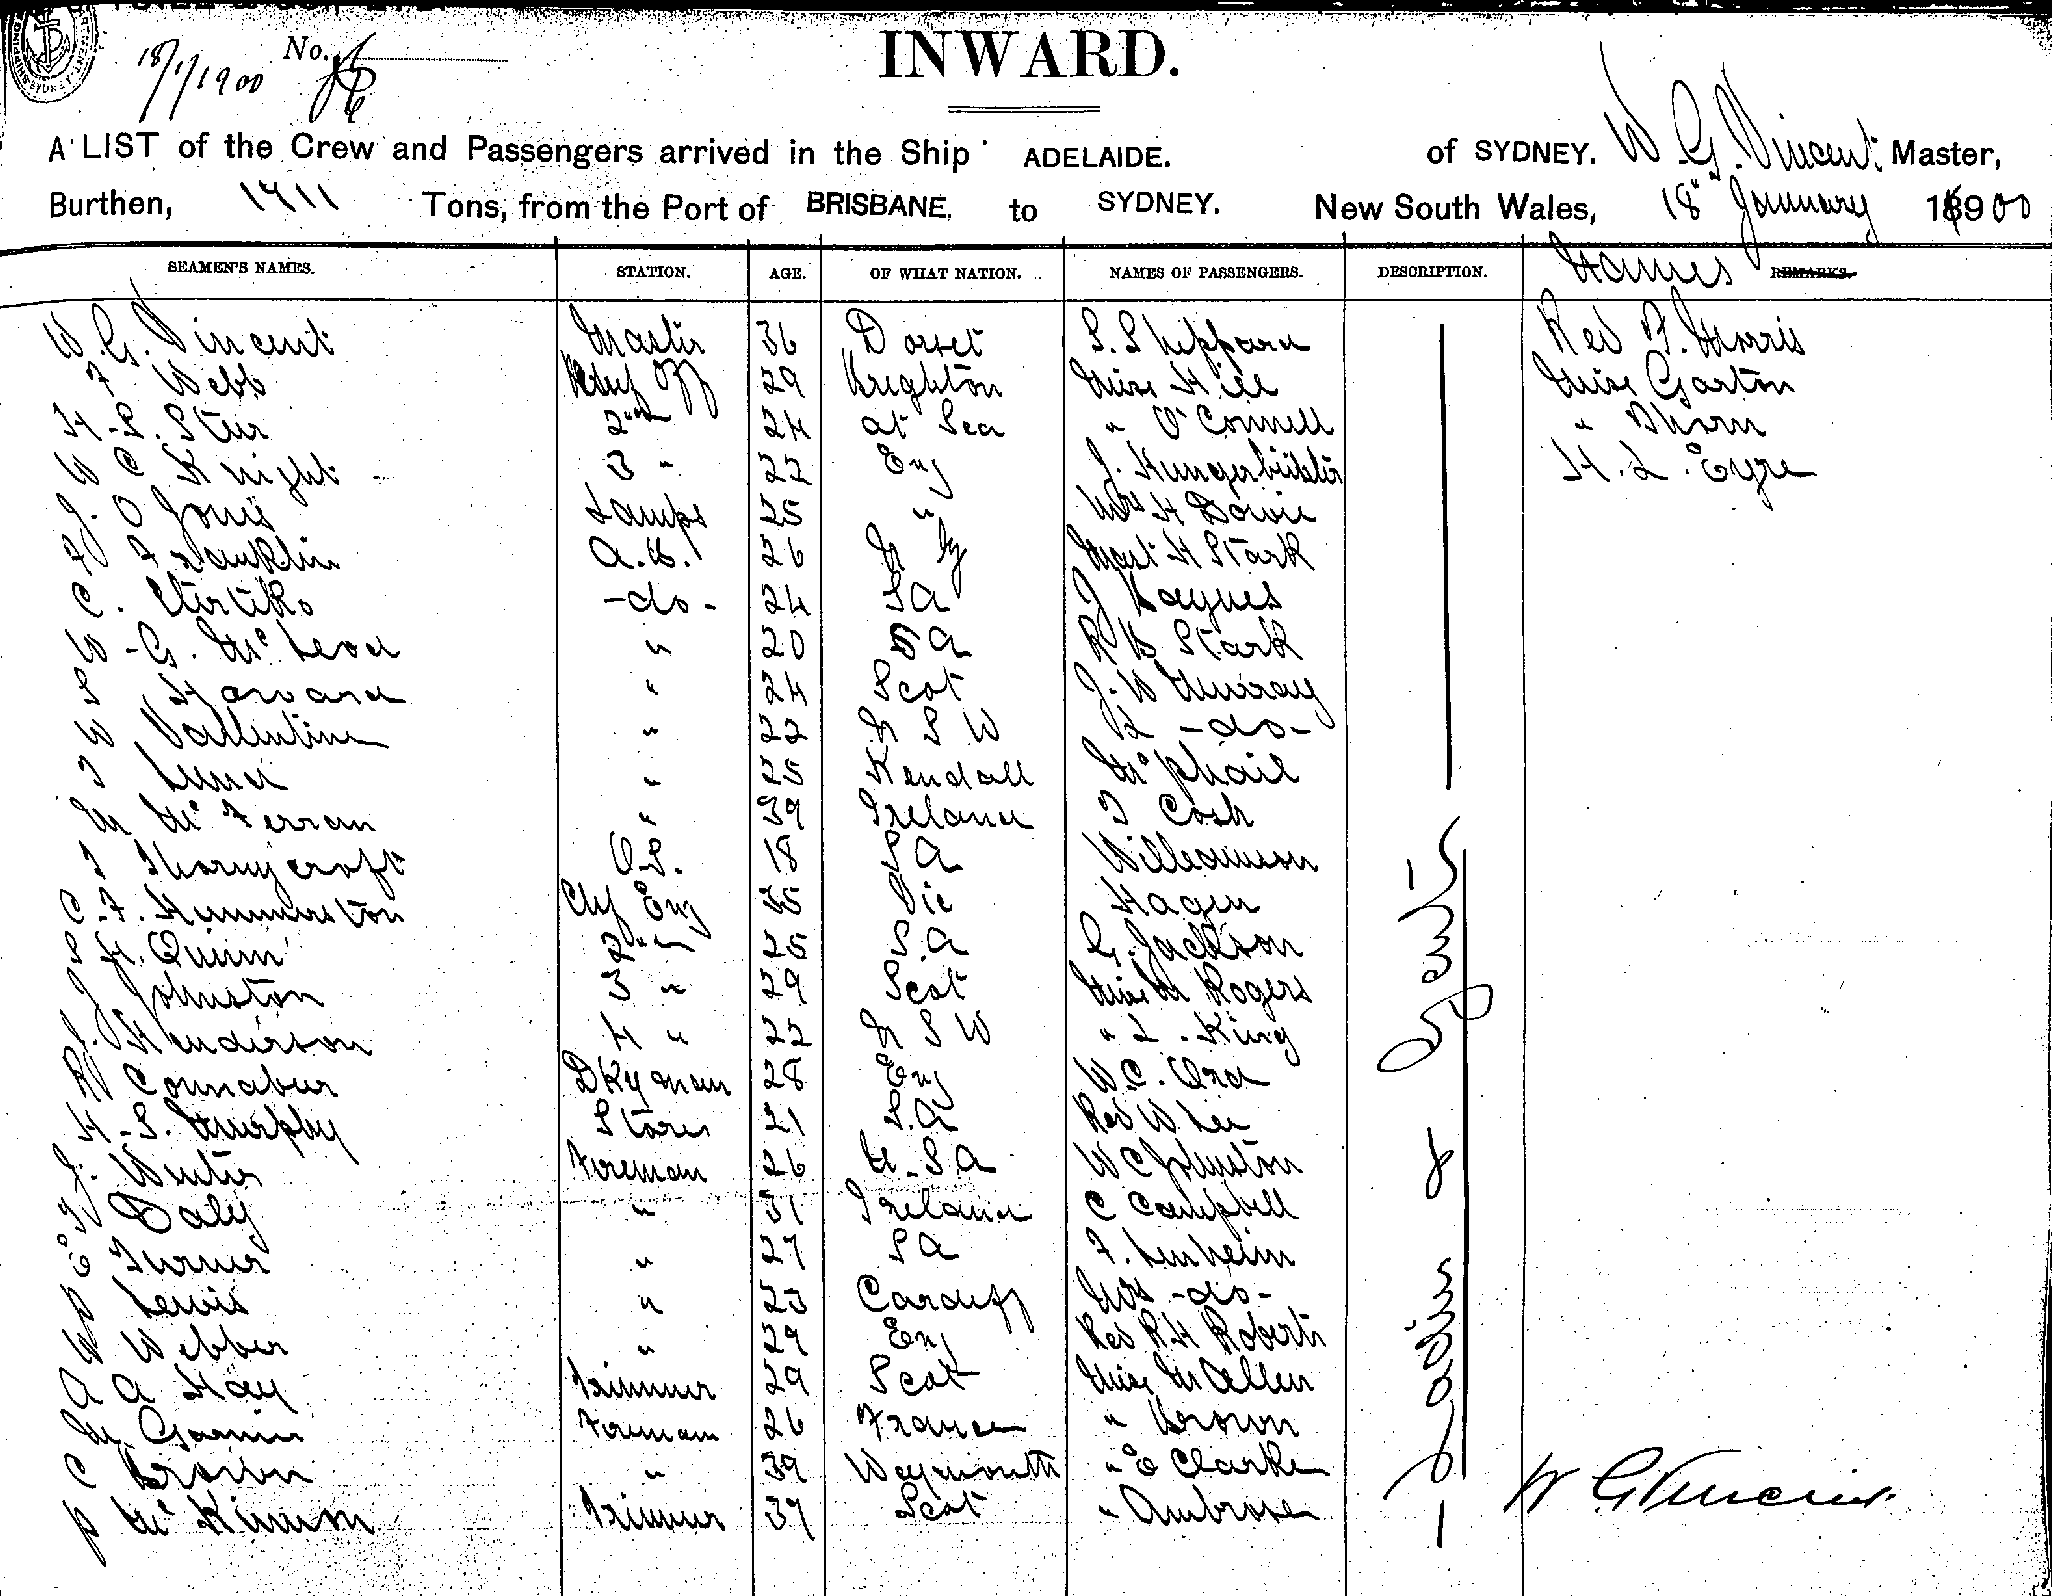 18/1/1900 No.
INWARD.
A LIST of the Crew and Passengers arrived in the Ship ADELAIDE. of SYDNEY. W. G. Vincent Master,
Burthen, 1711 Tons, from the Port of BRISBANE, to SYDNEY. New South Wales, 18" January 1900
SEAMEN'S NAMES. STATION. AGE. OF WHAT NATION. NAMES OF PASSENGERS. DESCRIPTION. Names REMARKS.
W. G. Vincent Master 36 Dorset S. Sheppard Rev F. Morris
F Webb Chf Off 29 Brighton Miss Hill Miss Garton
H. S. Stur 2nd 24 at Sea " O'Connell " Thorn
W C Knight 3 " 22 Eng J. Hungerbühler H. L. Eyre
J. O Jones Lamps 25 " Mrs H Bowie
F Franklin A.B. 26 Mast H Stark
C. -do- 24 SA J Haynes
W. G. McLeod " 20 SA R B Stark
S Harvard " 24 Scot J. W Murray
W Vallentine " 22 N S W R -do-
T Lund " 25 Kendall McPhail
M McFerran " 39 Ireland T Cosh
T Thornycroft O.S. 18 SA Williamson
C. F. Hummerston Chf Eng 35 Vic Hagen
S H. Quinn 2nd 25 S.A G. Jackson
J Johnston 3 " 29 Scot Miss M Rogers
J. Henderson 4 " 22 N S W " L. King
R Connabur Dkyman 28 Eng W. C. Ord
H. S. Murphy Stores 21 S.A Rev W. Lee
J. Winter Fireman 26 U.S.A W C Johnston
T Daly " 31 Ireland C Campbell
E Turner " 27 SA F. Lenheim
P Lewis " 23 Cardiff Mrs -do-
W Webber " 29 Eng Rev R H Roberts
A A Hay Trimmer 29 Scot Miss M Allen
M. Garnier Fireman 26 France " Brown
C Brown " 39 Weymouth " E Clarke
P McKinnon Trimmer 37 Scot " Ambrose
W G Vincent